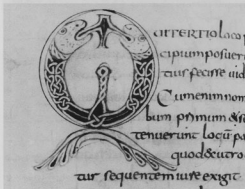 loco
cipium posuer
tur fecisse uid
Cum enim nom
bum primum dis
tenuerint locū pa
quod & utro
tur sequentem iure exigit